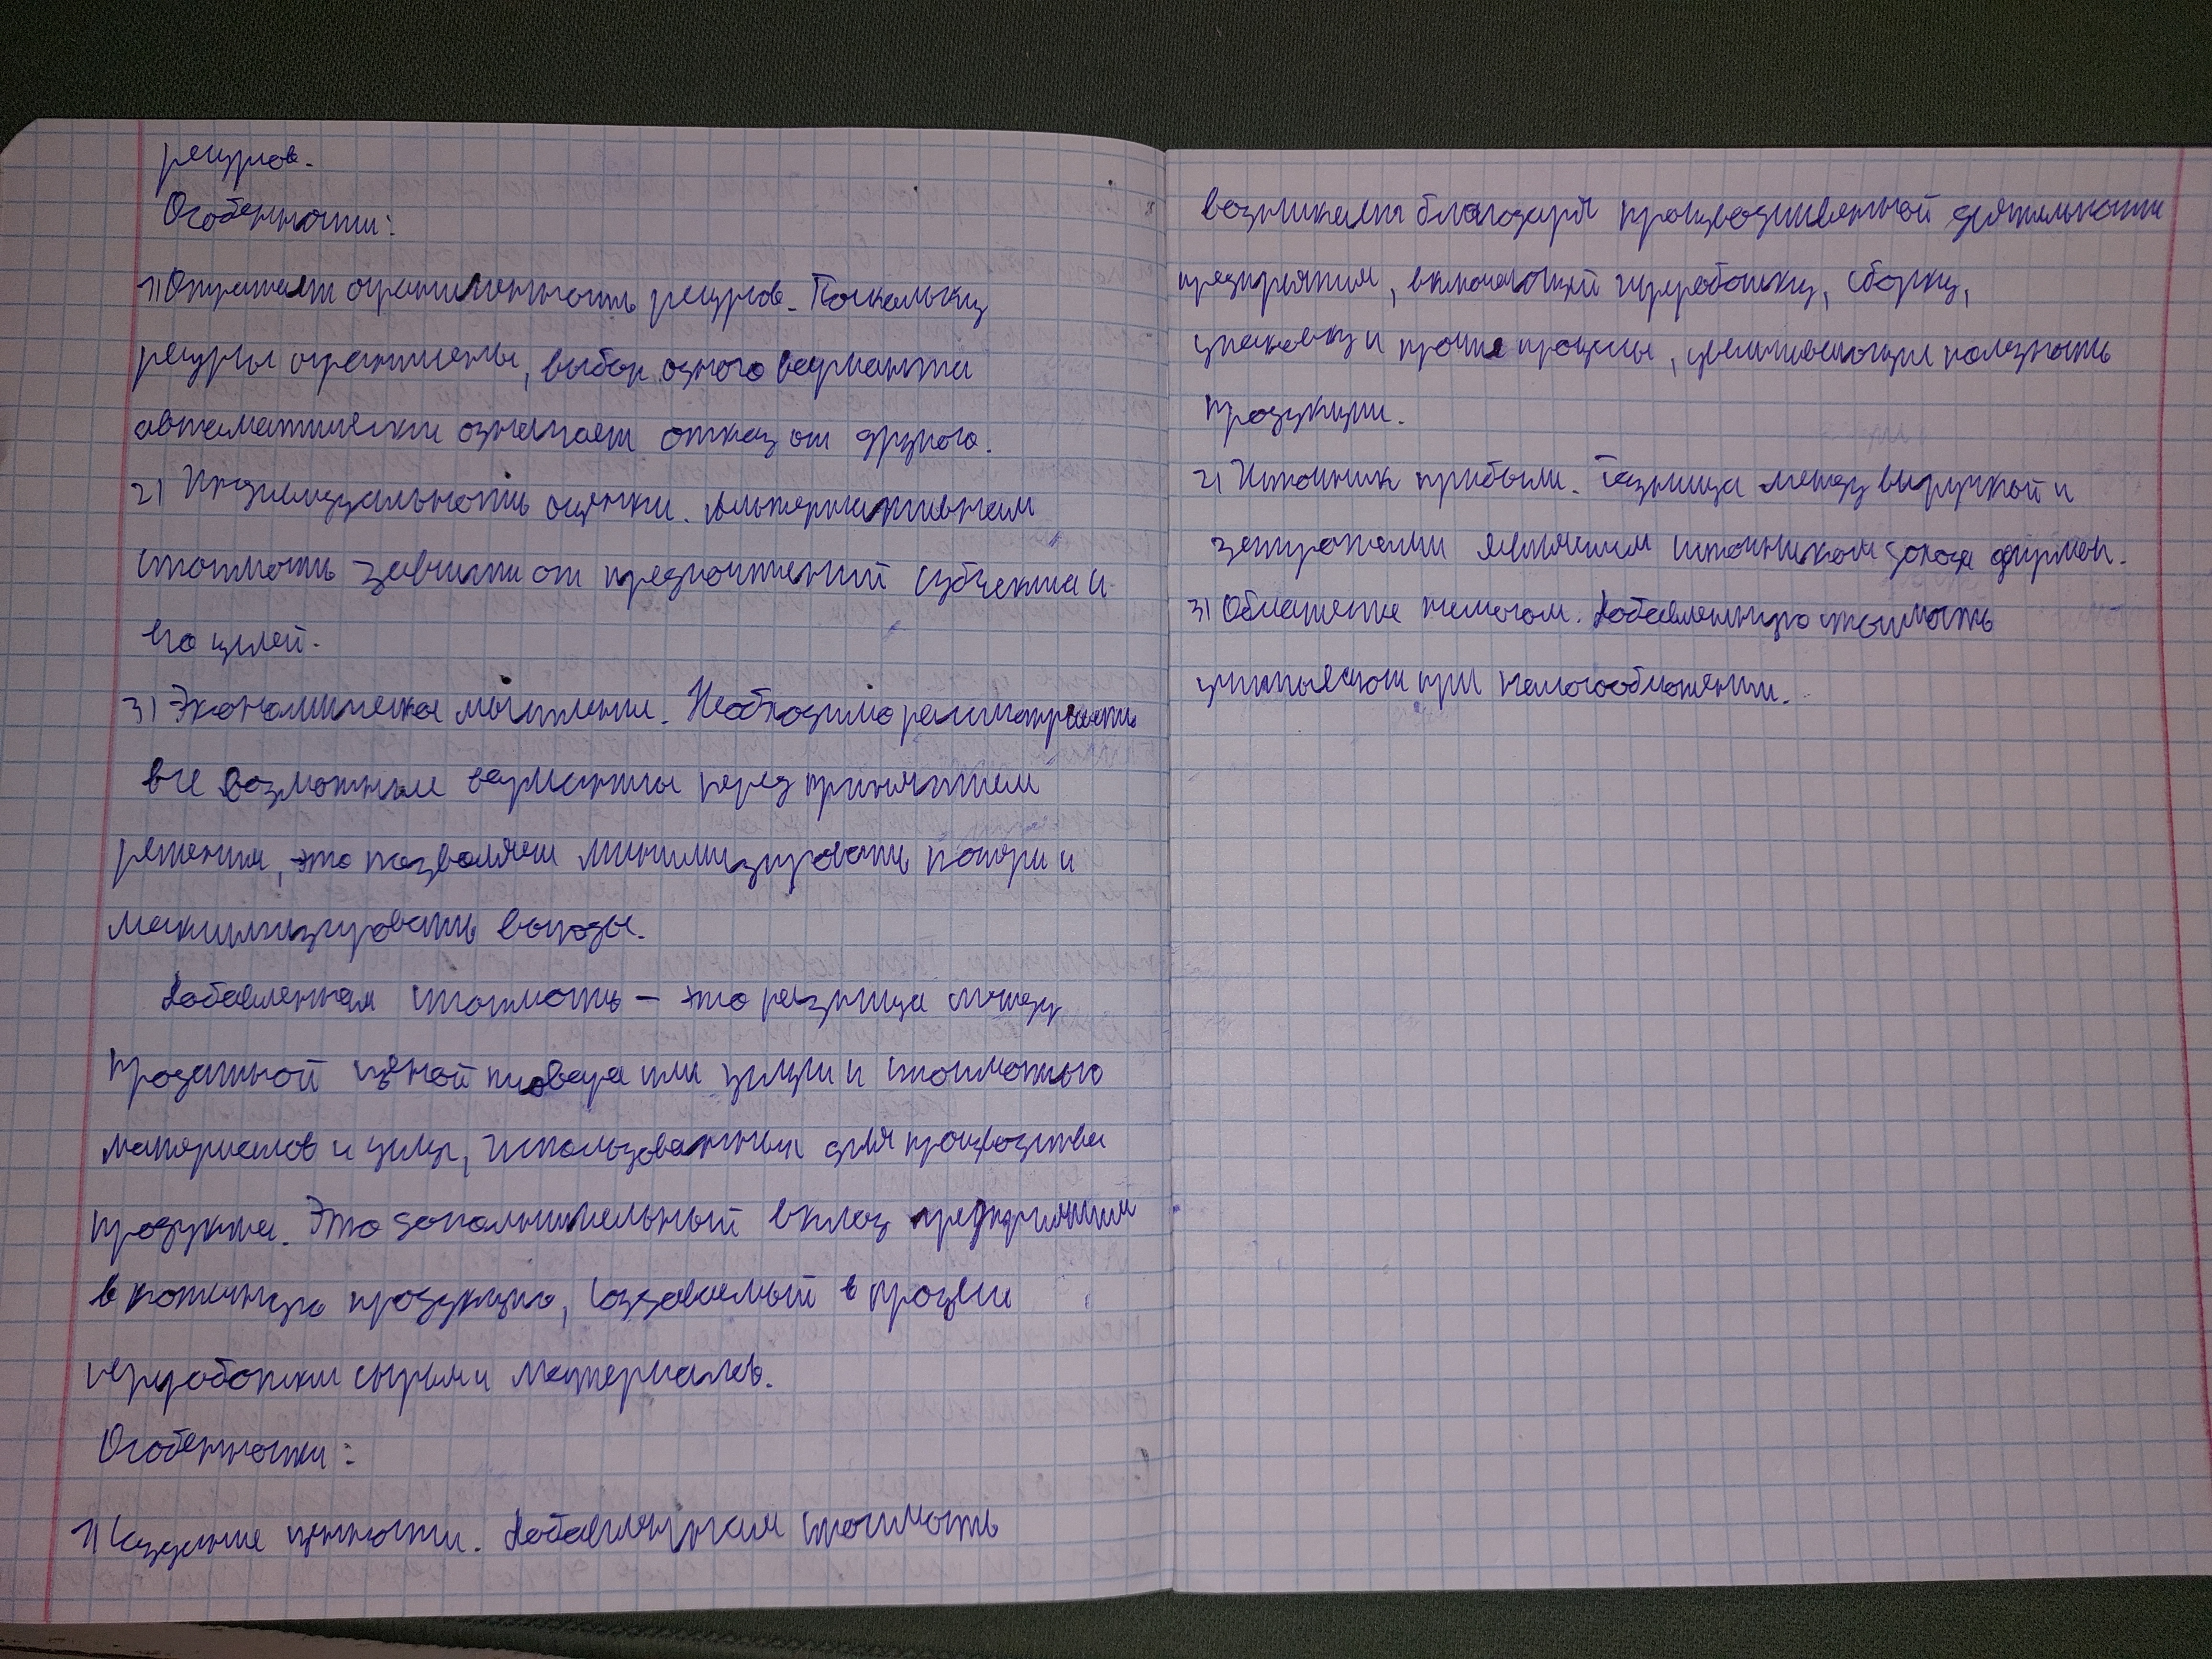 ресурсов.
Особенности:
1) Отражает ограниченность ресурсов. Поскольку
ресурсы ограничены, выбор одного варианта
автоматически означает отказ от другого.
2) Индивидуальность оценки. Альтернативная
стоимость зависит от предпочтений субъекта и
его целей.
3) Экономическое мышление. Необходимо рассматривать
все возможные варианты перед принятием
решения, это позволяет минимизировать потери и
максимизировать выгоды.
Добавленная стоимость – это разница между
продажной ценой товара или услуги и стоимостью
материалов и услуг, использованных для производства
продукта. Это дополнительный вклад предприятия
в конечную продукцию, создаваемый в процессе
переработки сырья и материалов.
Особенности:
1) Создание ценности. Добавленная стоимость
возникает благодаря производственной деятельности
предприятия, включающей переработку, сборку,
упаковку и прочие процессы, увеличивающие полезность
продукции.
2) Источник прибыли. Разница между выручкой и
затратами является источником дохода фирмы.
3) Обложение налогом. Добавленную стоимость
учитывают при налогообложении.